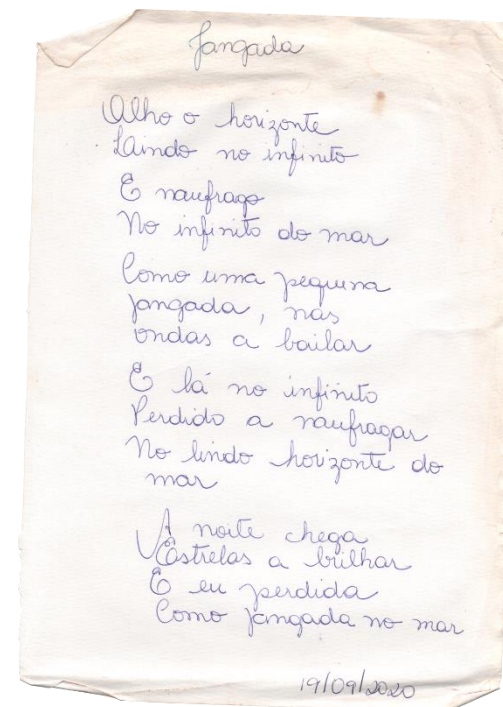 Jangada
Olho o horizonte
Caindo no infinito
E naufrago
No infinito do mar
Como uma pequena
jangada, nas
ondas a bailar
E lá no infinito
Perdido a naufragar
No lindo horizonte do
mar
A noite chega
Estrelas a brilhar
E eu perdida
Como jangada no mar
19/09/2020